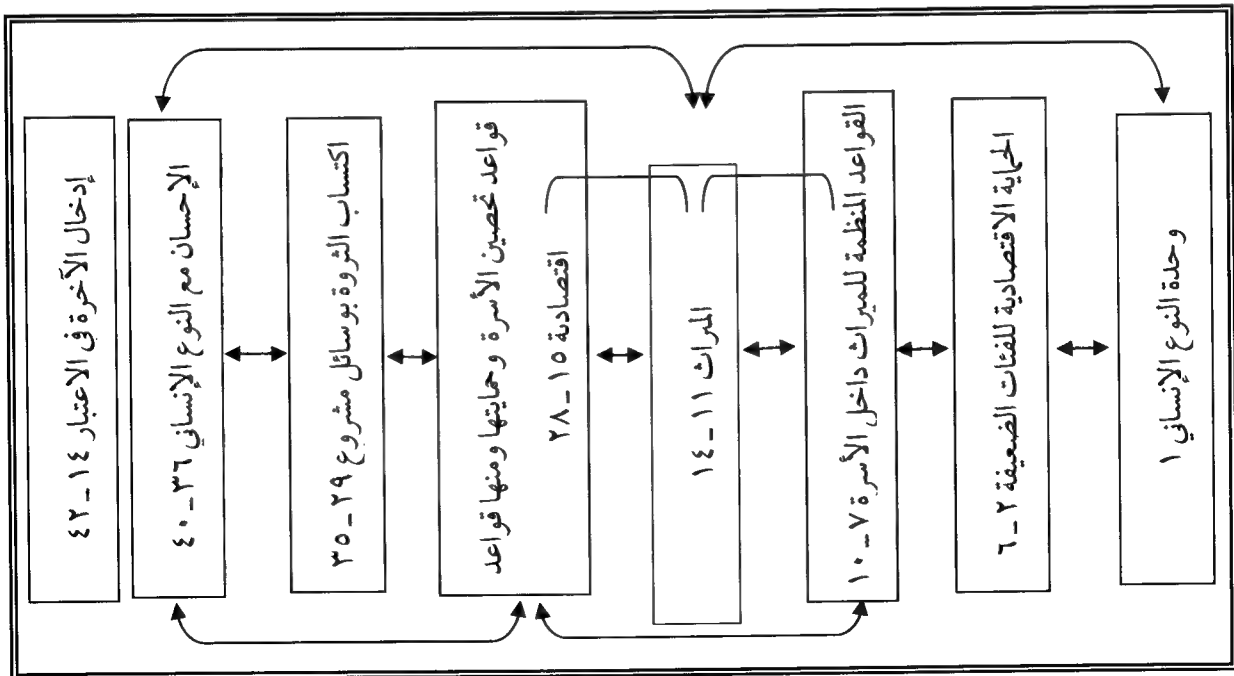 وحدة النوع الإنساني ١
الحماية الاقتصادية للفئات الضعيفة ٢_٦
القواعد المنظمة للميراث داخل الأسرة ٧_١٠
الميراث ١١_١٤
قواعد تحصين الأسرة وحمايتها ومنها قواعد
اقتصادية ١٥_٢٨
اكتساب الثروة بوسائل مشروع ٢٩_٣٥
الإحسان مع النوع الإنساني ٣٦_٤٠
إدخال الآخرة في الاعتبار ١٤_٤٢